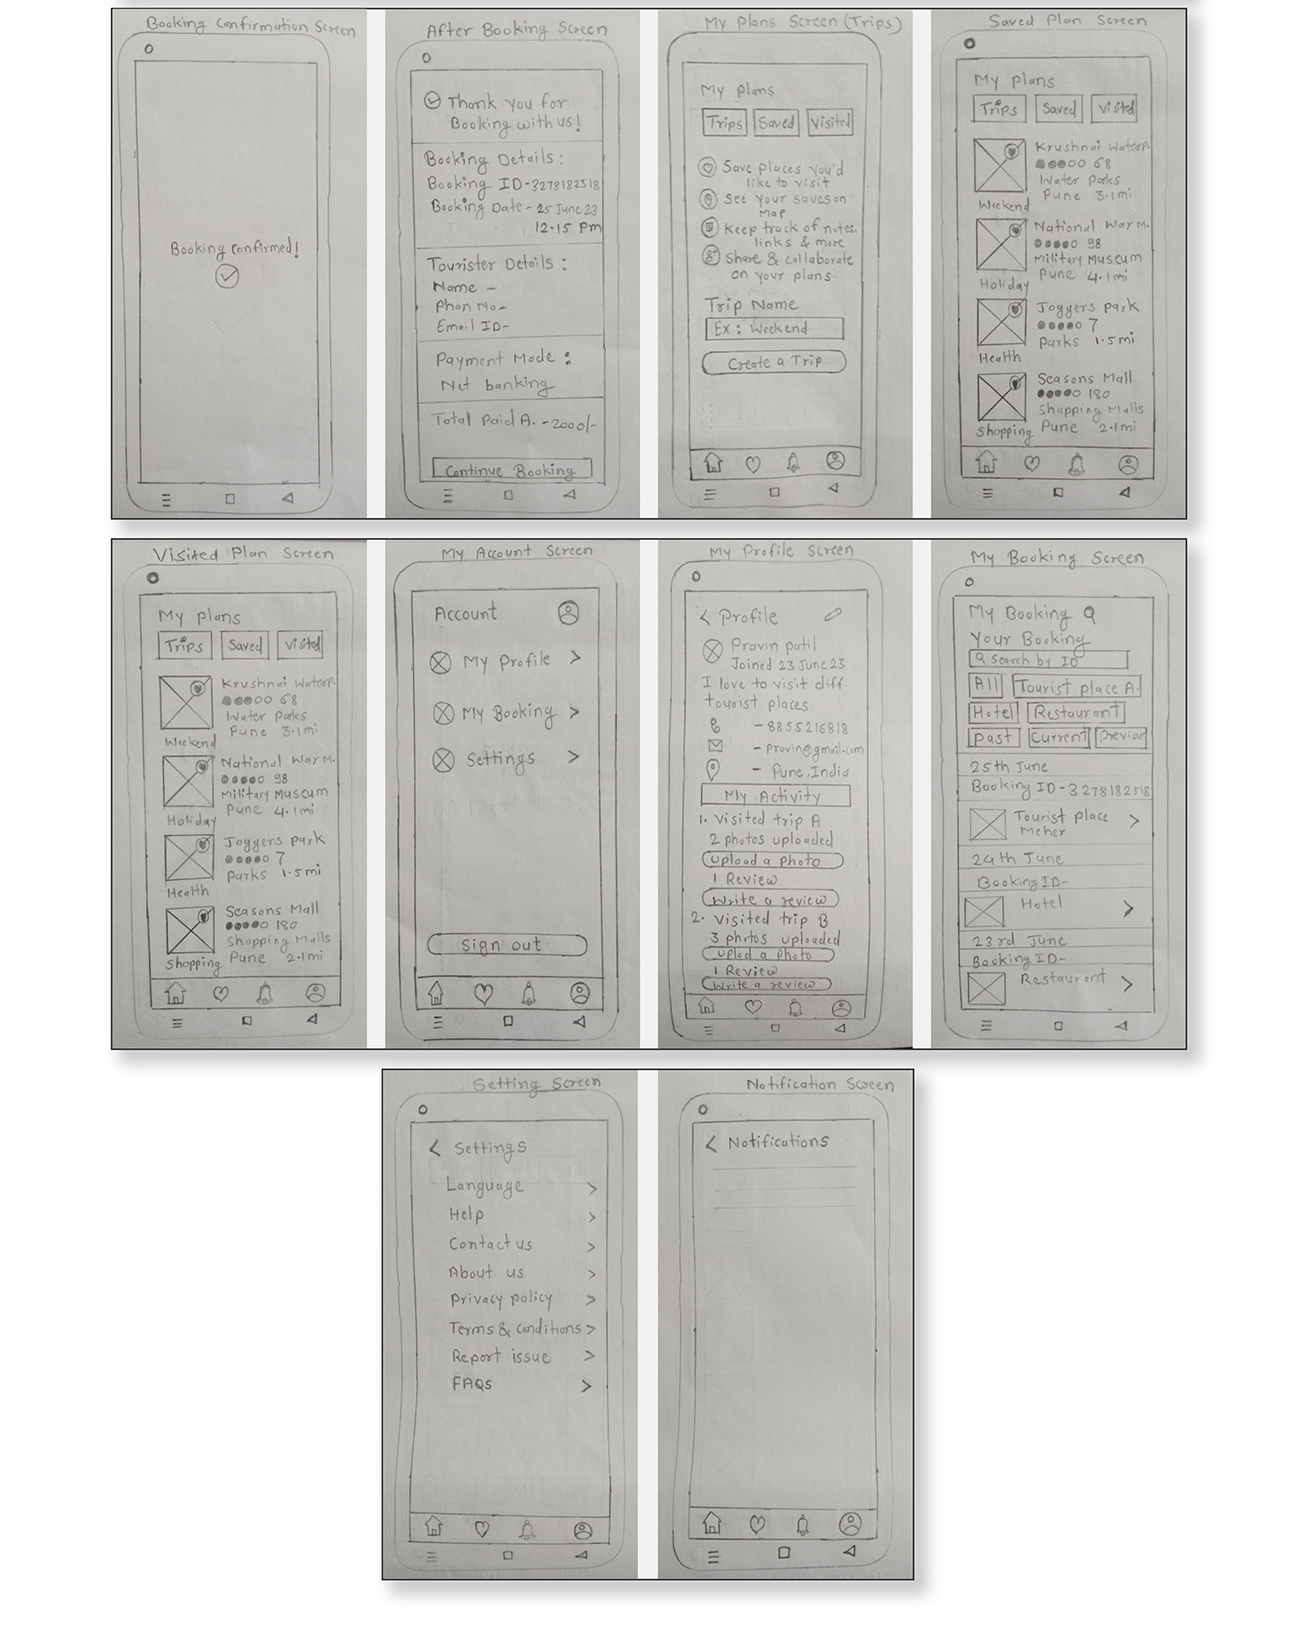 Booking Confirmation Screen
Booking confirmed!
After Booking Screen
Thank you for
Booking with us!
Booking Details:
Booking ID-3278182518
Booking Date - 25 June 23
12.15 Pm
Tourister Details:
Name -
Phon No-
Email ID-
Payment Mode:
Net banking
Total Paid A. - 2000/-
Continue Booking
My Plans Screen (Trips)
My plans
Trips Saved Visited
Save places you'd
like to visit
See your saves on
Map
Keep track of notes.
links & more
Share & collaborate
on your plans
Trip Name
Ex: Weekend
Create a Trip
Saved Plan Screen
My plans
Trips Saved Visted
Krushnai Waterp.
68
Water Parks
Pune 3.1mi
Weekend
National War M.
98
Military Museum
Pune 4.1mi
Holiday
Joggers park
7
Parks 1.5mi
Health
Seasons Mall
180
Shopping Malls
Pune 2.1mi
Shopping
Visited Plan Screen
My plans
Trips Saved Visted
Krushnai Waterp.
68
Water Parks
Pune 3.1mi
Weekend
National War M.
98
Military Museum
Pune 4.1mi
Holiday
Joggers park
7
Parks 1.5mi
Health
Seasons Mall
180
Shopping Malls
Pune 2.1mi
Shopping
My Account Screen
Account
My Profile >
My Booking >
Settings >
Sign out
My Profile Screen
< Profile
Pravin patil
Joined 23 June 23
I love to visit diff.
tourist places
- 8855216818
- pravin@gmail.com
- Pune, India
My Activity
1. Visited trip A
2 photos uploaded
Upload a photo
1 Review
Write a review
2. Visited trip B
3 photos uploaded
Upled a photo
1 Review
Write a review
My Booking Screen
My Booking
Your Booking
Search by ID
All Tourist place A.
Hotel Restaurant
Past Current Previou
25th June
Booking ID-3278182518
Tourist place >
Meher
24th June
Booking ID-
Hotel >
23rd June
Booking ID-
Restaurant >
Setting Screen
< Settings
Language >
Help >
Contact us >
About us >
Privacy policy >
Terms & Conditions >
Report issue >
FAQs >
Notification Screen
< Notifications